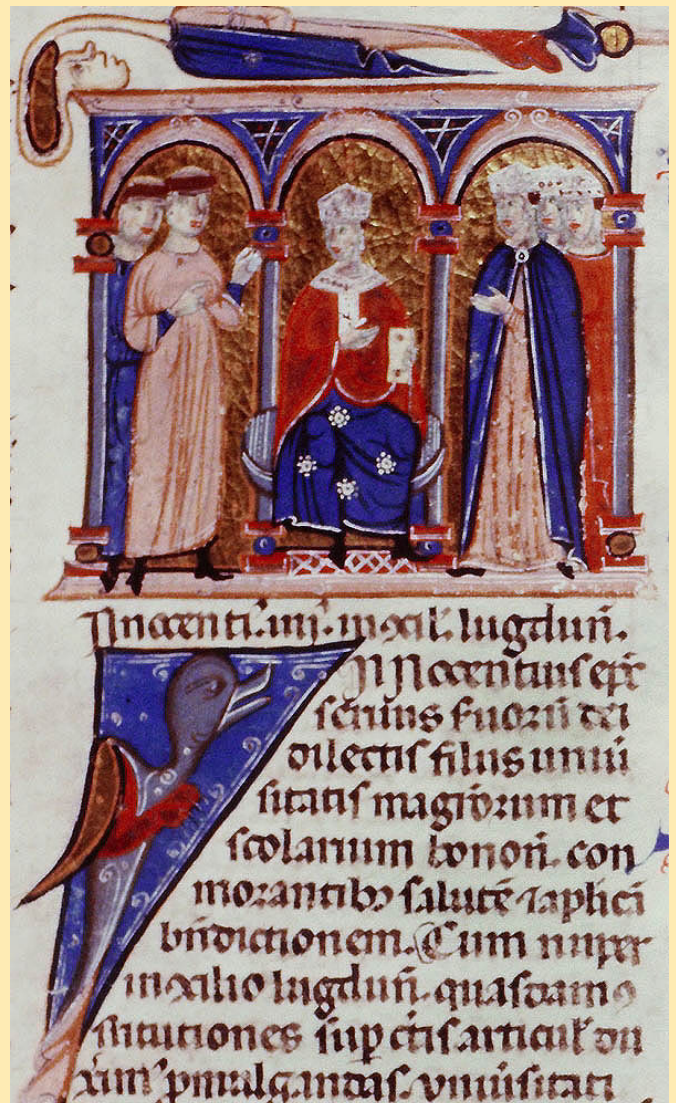 Innocenti'. iiij. in ɔcil'. lugduñ.
INnocentius ep̄c
seruus s̾uorū dei
dilectis filiis uniū
sitatis magr̄orum et
scolarium bonoñ. con
morantibȝ salutē ⁊ aplicā
bn̄dictionem. Cum nuper
in ɔcilio lugduñ. quasdam ɔ
stitutiones suꝑ c̄tis articul' du
xim' ꝓmulgandas. vniūsitati